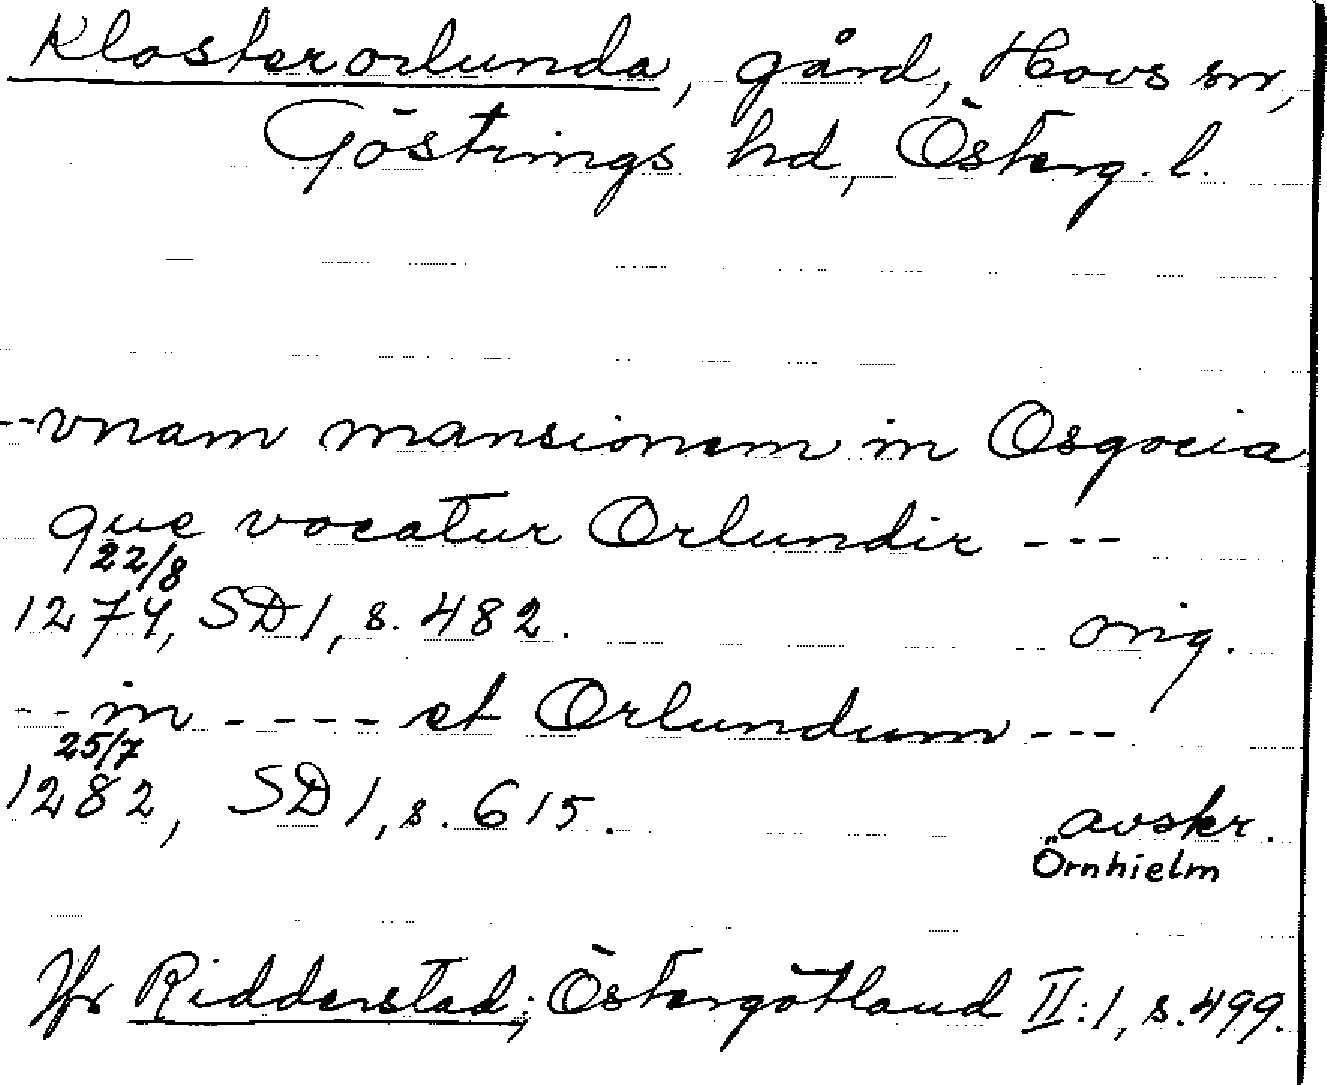 Klosterorlunda, gård, Hovs sn,
Göstrings hd, Österg. l.
--vnam mansionem in Osgocia
que vocatur Orlundir ---
22/8
1274, SD 1, s. 482. orig.
-- in ---- et Orlundum ---
25/7
1282, SD 1, s. 615. avskr.
Örnhielm
Jfr Ridderstad; Östergötland II:1, s. 499.